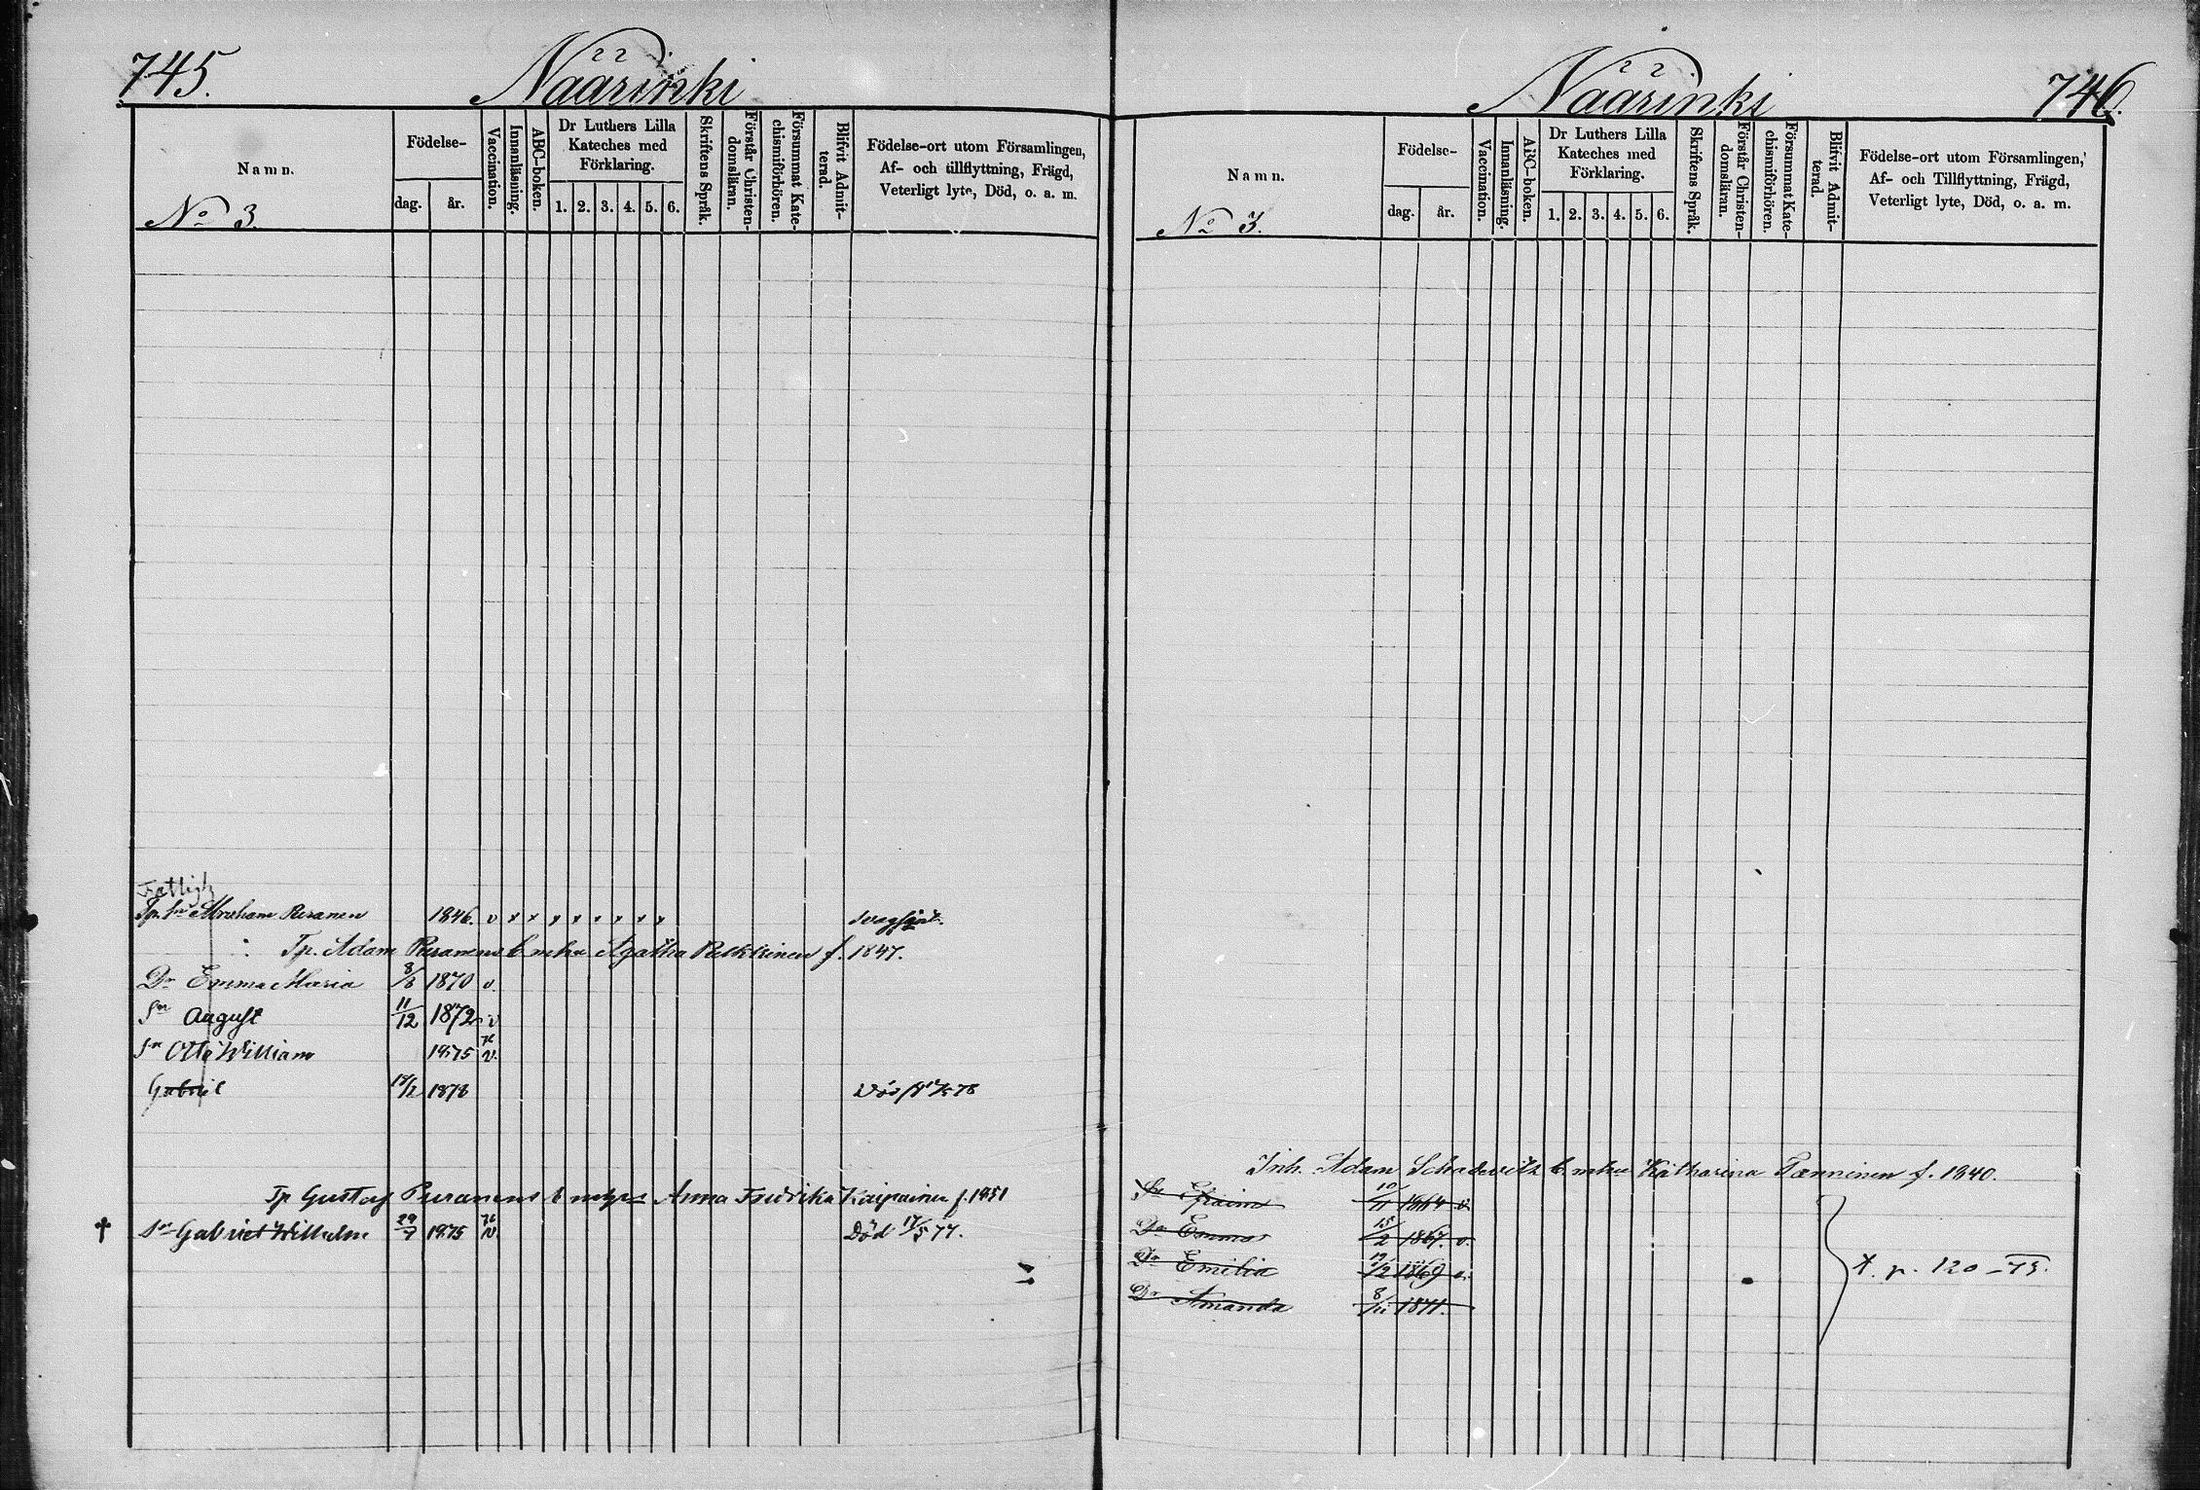 745.
Näärinki
Namn.
Födelse-
dag.
år.
Vaccination.
Innanläsning.
ABC-boken.
Dr Luthers Lilla
Kateches med
Förklaring.
1. 2. 3. 4. 5. 6.
Skriftens Språk.
Förstår Christen-
domsläran.
Försummat Kate-
chismiförhören.
Blifvit Admit-
terad.
Födelse-ort utom Församlingen,
Af- och tillflyttning, Frägd,
Veterligt lyte, Död, o. a. m.
No 3.
Fattigh
Tp. Sn Abraham Puranen 1846. v x x x x x x x x svagsint.
Tp. Adam Puranens b mhu Agatha Pulkkinen f. 1847.
Dr Emma Maria 8/8 1870 v.
Sn August 11/12 1872 v
Sn Otto William 1875 76 v.
Gabriel 1878 Död 78
Tp Gustaf Puranens b Anna Fredrika Kaipainen f. 1851
† Sn Gabriel Wilhelm 29/7 1875 76 v Död 17/5 77.
746.
Näärinki
Namn.
Födelse-
dag.
år.
Vaccination.
Innanläsning.
ABC-boken.
Dr Luthers Lilla
Kateches med
Förklaring.
1. 2. 3. 4. 5. 6.
Skriftens Språk.
Förstår Christen-
domsläran.
Försummat Kate-
chismiförhören.
Blifvit Admit-
terad.
Födelse-ort utom Församlingen,
Af- och Tillflyttning, Frägd,
Veterligt lyte, Död, o. a. m.
No 3.
Inh. Adam Schadevitz b mhu Katharina Tanninen f. 1840.
Sn Efraim 10/11 1864 v.
Dr Emma 15/2 1867. v.
Dr Emilia 12/12 1869 v.
Dr Amanda 8/11 1871.
t. p. 120 - 75.